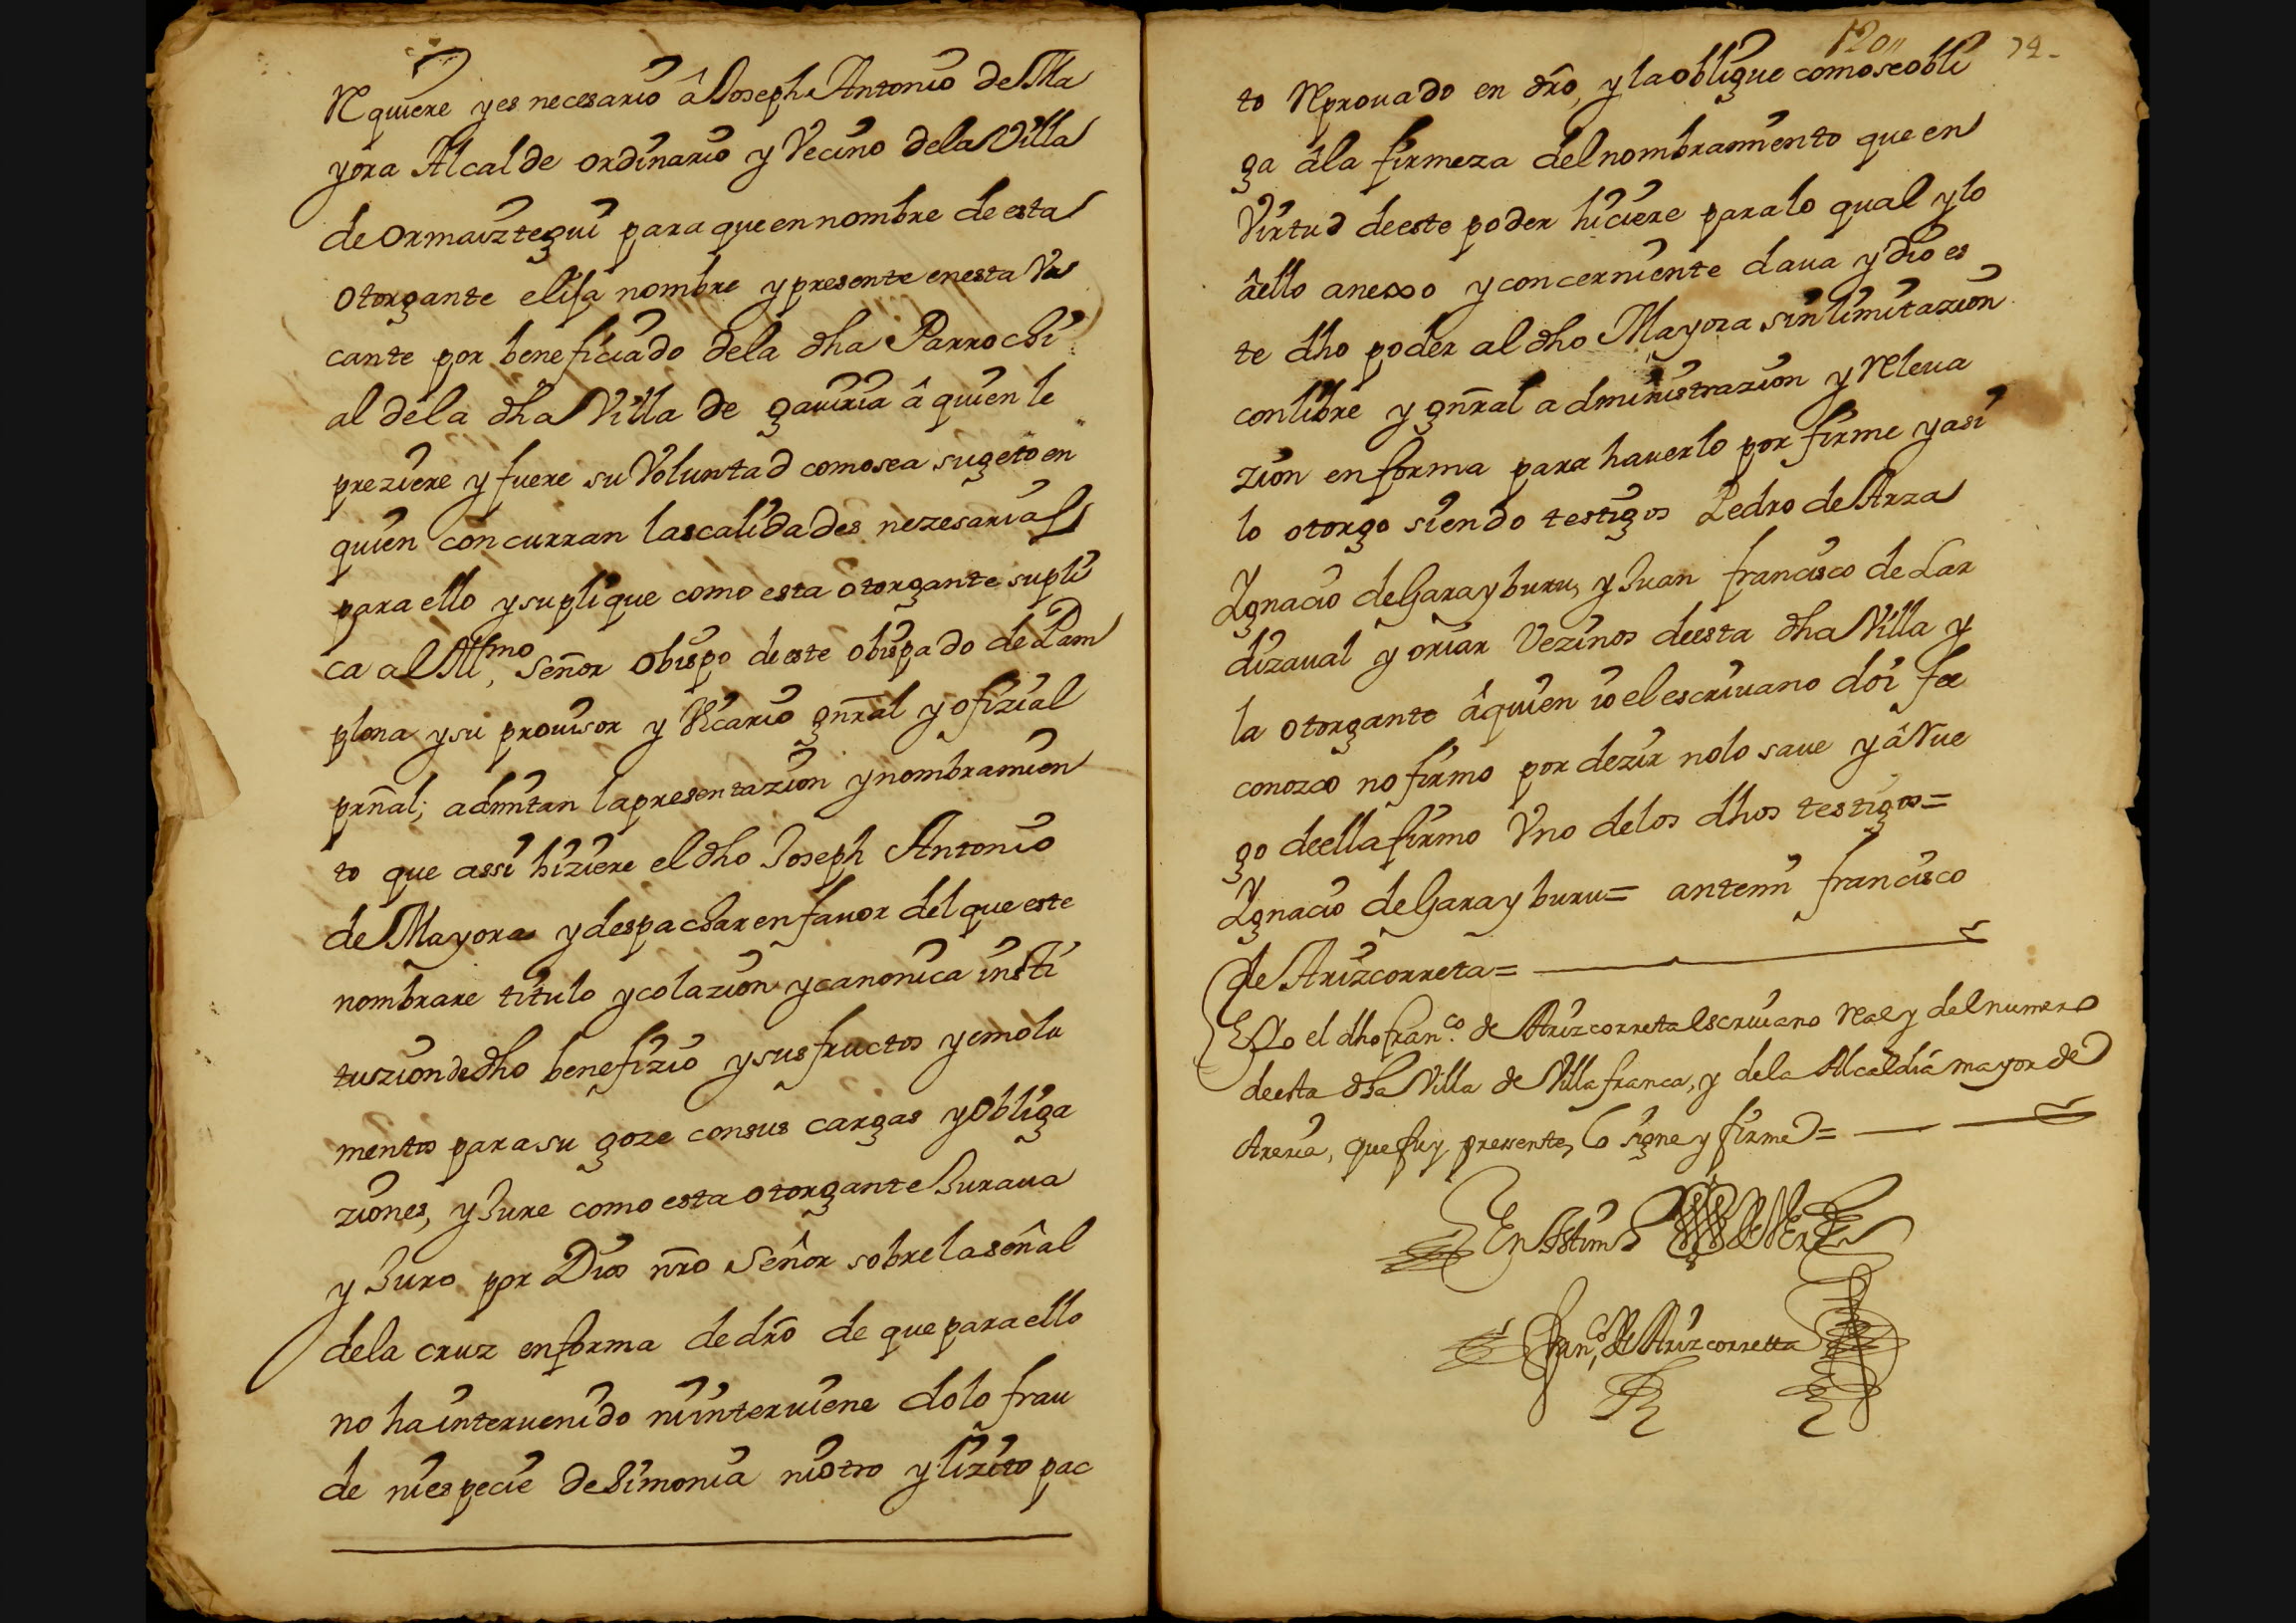 Requiere y es necesario â Joseph Antonio de Ma
yora Alcalde ordinario y Vecino dela Villa
de Ormaiztegui para que en nombre de esta
otorgante elija nombre y presente en esta Va
cante por beneficiado dela dha Parrochi
al dela dha Villa de gaviria â quien le
preziere y fuere su Voluntad como sea sugeto en
quien concurran las calidades nezesarias
para ello y suplique como esta otorgante supli
ca al Illmo, señor Obispo de este obispado de Pam
plona y su provisor y Vicario gñral y ofizial
prñal; admitan la presentazion y nombramien
to que assi hiziere el dho Joseph Antonio
de Mayora y despachar en favor del que este
nombrare titulo y colazion y canonica insti
tuszion de dho benefizio y sus fructos y emolu
mentos para su goze con sus cargas y Obliga
ziones, y Jure como esta otorgante Jurava
y Juro por Dios nr̃o Señor sobre la señal
dela cruz en forma de dr̃o de que para ello
no ha intervenido ni interviene dolo frau
de ni especie de Simonia ni otro ylizito pac
120 74
to Reprovado en dr̃o, y la oblique como se obli
ga âla firmeza del nombramiento que en
Virtud de este poder hiciere para lo qual y lo
âello anexo y concerniente dava y dio es
te dho poder al dho Mayora sin limitazion
con libre y gñral administrazion y Releva
zion en forma para haverlo por firme y asi
lo otorgo siendo testigos Pedro de Arza
Ygnacio de Garayburu, y Juan francisco de Lar
dizaval y oriar Vezinos de esta dha Villa y
la otorgante âquien io el escrivano doi fee
conozco no firmo por dezir no lo save y â Rue
go de ella firmo Vno de los dhos testigos=
Ygnacio de Garayburu= ante mi francisco
de Arizcorreta=
E Yo el dho franco. de Arizcorreta Escrivano Real y del numero
de esta dha Villa de Villafranca, y dela Alcaldia mayor de
Areria, que fuy presente, lo signe y firme=
En testimo de Ver
Franco, de Arizcorretta